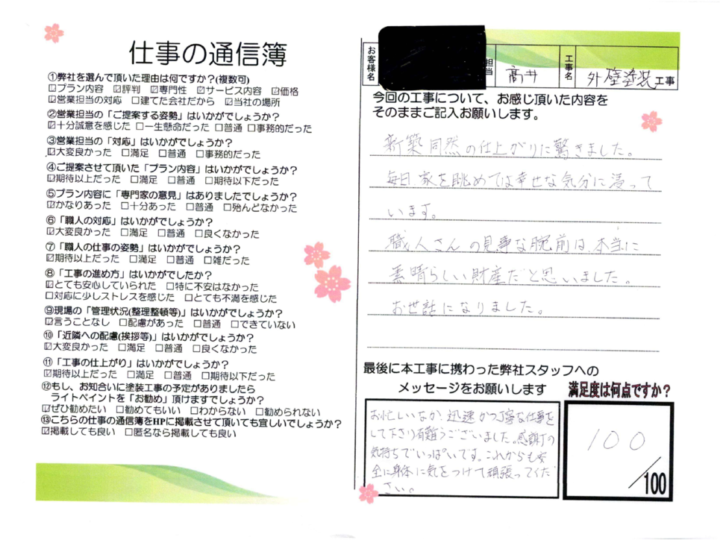 仕事の通信簿
①弊社を選んで頂いた理由は何ですか?(複数可)
☑プラン内容 ☑評判 ☑専門性 ☑サービス内容 ☑価格
☑営業担当の対応 □建てた会社だから ☑当社の場所
②営業担当の「ご提案する姿勢」はいかがでしょうか?
☑十分誠意を感じた □一生懸命だった □普通 □事務的だった
③営業担当の「対応」はいかがでしょうか?
☑大変良かった □満足 □普通 □事務的だった
④ご提案させて頂いた「プラン内容」はいかがでしょうか?
☑期待以上だった □満足 □普通 □期待以下だった
⑤プラン内容に「専門家の意見」はありましたでしょうか?
☑かなりあった □十分あった □普通 □殆んどなかった
⑥「職人の対応」はいかがでしょうか?
☑大変良かった □満足 □普通 □良くなかった
⑦「職人の仕事の姿勢」はいかがでしょうか?
☑期待以上だった □満足 □普通 □雑だった
⑧「工事の進め方」はいかがでしたか?
☑とても安心していられた □特に不安はなかった
□対応に少しストレスを感じた □とても不満を感じた
⑨現場の「管理状況(整理整頓等)」はいかがでしょうか?
☑言うことなし □配慮があった □普通 □できていない
⑩「近隣への配慮(挨拶等)」はいかがでしょうか?
☑大変良かった □満足 □普通 □良くなかった
⑪「工事の仕上がり」はいかがでしょうか?
☑期待以上だった □満足 □普通 □期待以下だった
⑫もし、お知合いに塗装工事の予定がありましたら
ライトペイントを「お勧め」頂けますでしょうか?
☑ぜひ勧めたい □勧めてもいい □わからない □勧められない
⑬こちらの仕事の通信簿をHPに掲載させて頂いても宜しいでしょうか?
☑掲載しても良い □匿名なら掲載しても良い
お客様名 担当 高井 工事名 外壁塗装工事
今回の工事について、お感じ頂いた内容を
そのままご記入お願いします。
新築同然の仕上がりに驚きました。
毎日家を眺めては幸せな気分に浸って
います。
職人さんの見事な腕前は、本当に
素晴らしい財産だと思いました。
お世話になりました。
最後に本工事に携わった弊社スタッフへの
メッセージをお願いします
お忙しいなか、迅速かつ丁寧な仕事を
して下さり有難うございました。感謝の
気持ちでいっぱいです。これからも安
全に身体に気をつけて頑張ってくだ
さい。
満足度は何点ですか?
100
/100